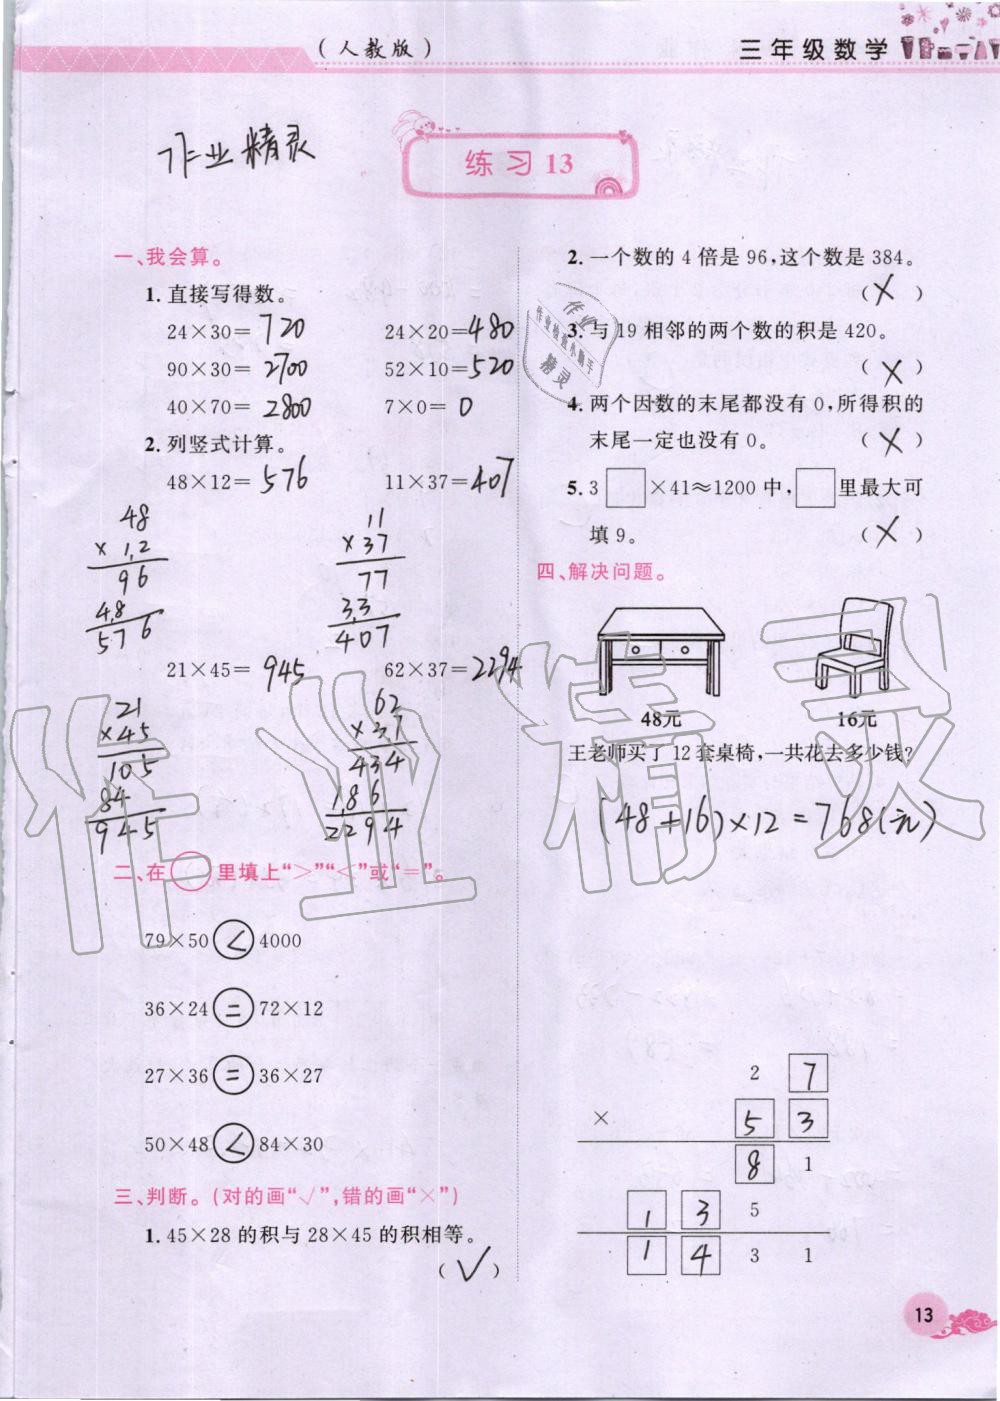 （人教版）
三年级数学
作业精灵
练习 13
一、我会算。
1. 直接写得数。
24×30= 720 24×20= 480
90×30= 2700 52×10= 520
40×70= 2800 7×0= 0
2. 列竖式计算。
48×12= 576 11×37= 407
48
× 12
96
48
576
11
× 37
77
33
407
21×45= 945 62×37= 2294
21
×45
105
84
945
62
×37
434
186
2294
二、在○里填上“>”“<”或“=”。
79×50 < 4000
36×24 = 72×12
27×36 = 36×27
50×48 < 84×30
三、判断。(对的画“√”,错的画“×”)
1. 45×28 的积与 28×45 的积相等。
( √ )
2. 一个数的 4 倍是 96,这个数是 384。
( × )
3. 与 19 相邻的两个数的积是 420。
( × )
4. 两个因数的末尾都没有 0,所得积的
末尾一定也没有 0。 ( × )
5. 3□×41≈1200 中,□里最大可
填 9。 ( × )
作业
作业检查小助手
精灵
四、解决问题。
48元 16元
王老师买了 12 套桌椅,一共花去多少钱?
(48+16)×12=768(元)
2 7
× 5 3
8 1
1 3 5
1 4 3 1
作业精灵
13